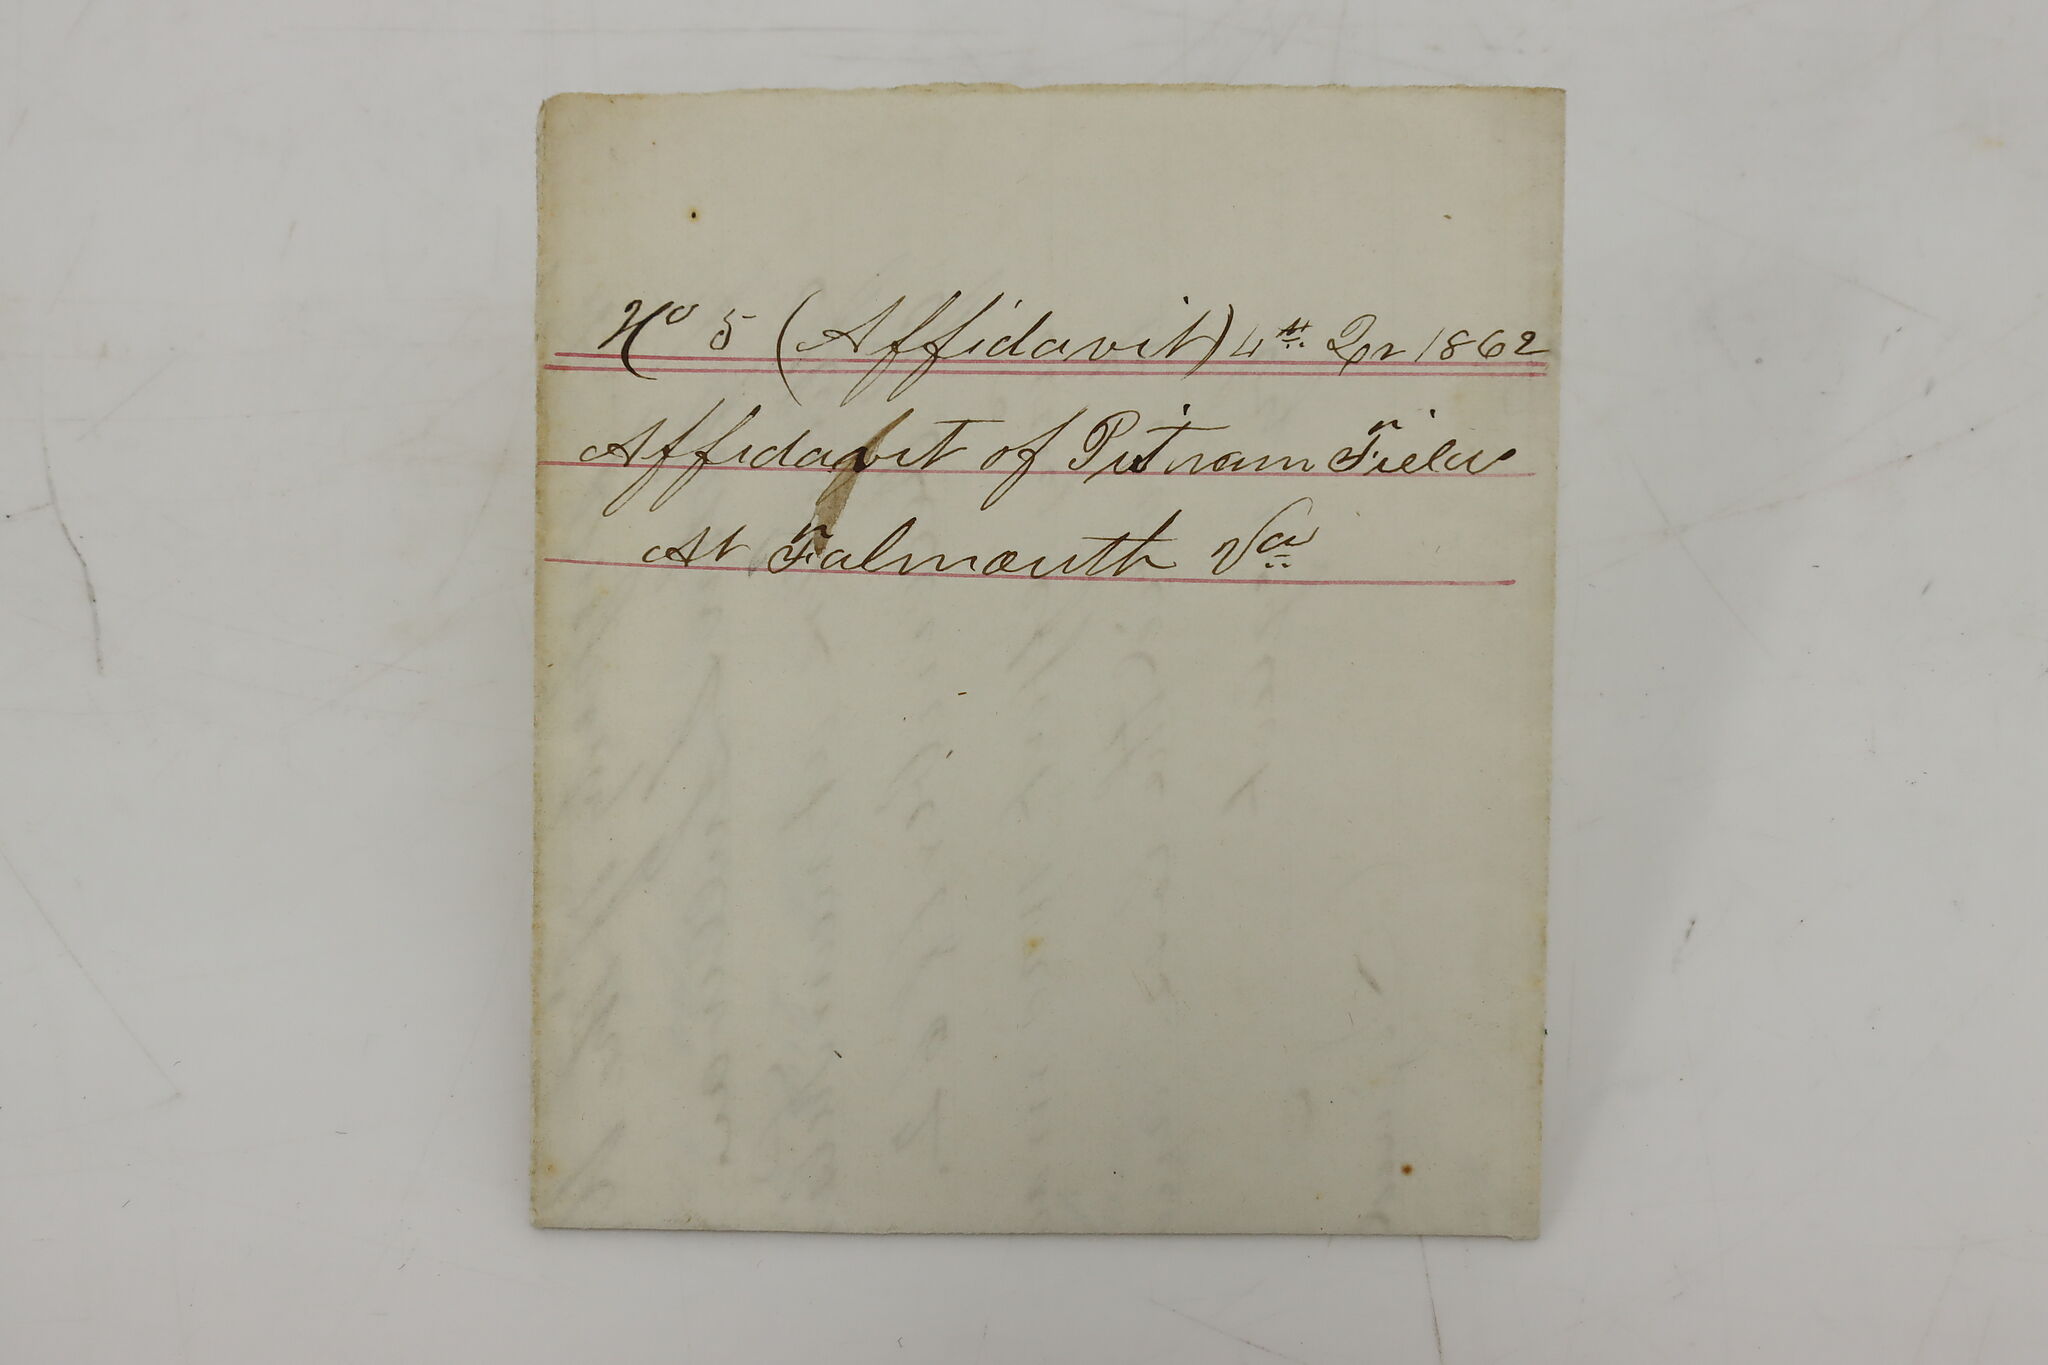 No 5 (Affidavit) 4th Qr 1862
Affidavit of Putnam Field
At Falmouth Va